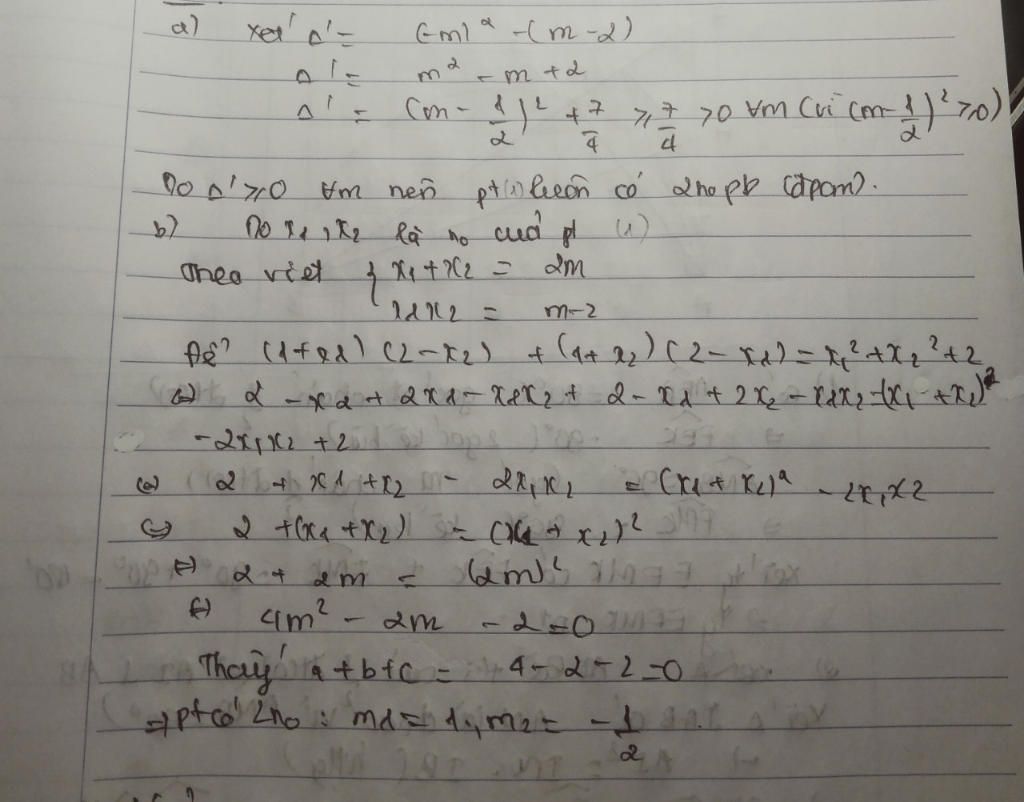 a) Xét Δ' = (-m)² - (m - 2)
Δ' = m² - m + 2
Δ' = (m - 1/2)² + 7/4 ≥ 7/4 > 0 ∀m (vì (m - 1/2)² ≥ 0)
Do Δ' ≥ 0 ∀m nên pt(1) luôn có 2no pb (đpcm).
b) Do x1, x2 là no của pt (1)
Theo viet { x1 + x2 = 2m
x1x2 = m-2
Để (1+x1)(2-x2) + (1+x2)(2-x1) = x1² + x2² + 2
⇔ 2 - x2 + 2x1 - x1x2 + 2 - x1 + 2x2 - x1x2 = (x1 + x2)²
- 2x1x2 + 2
⇔ 2 + x1 + x2 - 2x1x2 = (x1 + x2)² - 2x1x2
⇔ 2 + (x1 + x2) = (x1 + x2)²
⇔ 2 + 2m = (2m)²
⇔ 4m² - 2m - 2 = 0
Thấy a + b + c = 4 - 2 - 2 = 0
⇒ pt có 2no : m1 = 1 ; m2 = -1/2